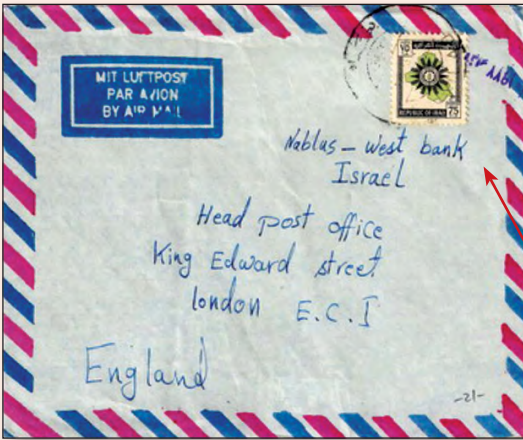 MIT LUFTPOST
PAR AVION
BY AIR MAIL
REPUBLIC OF IRAQ
75
Nablus - West bank
Israel
Head post office
King Edward street
london E.C.I
England
-21-